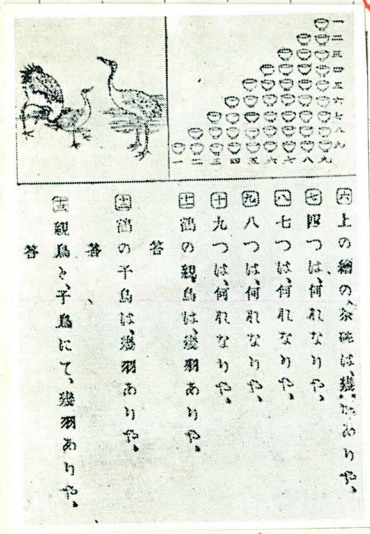 一 二 三 四 五 六 七 八 九
一 二 三 四 五 六 七 八 九
六 上の繪の、茶碗は、幾つありや、
七 四つは、何れなりや、
八 七つは、何れなりや、
九 八つは、何れなりや、
十 九つは、何れなりや、
十一 鶴の親鳥は、幾羽ありや、
答
十二 鶴の子鳥は、幾羽ありや、
答
十三 親鳥と、子鳥にて、幾羽ありや、
答